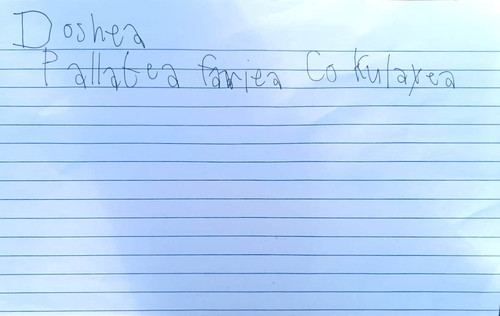 Doshea
Pallatea fariea Co Kularea